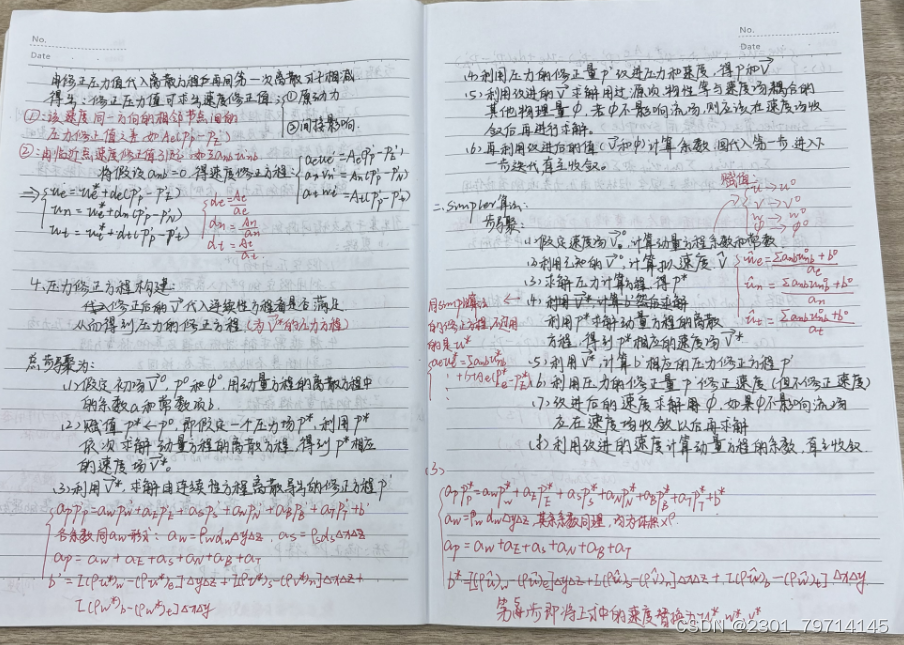 No.
Date
由修正压力值代入离散方程后再同第一次离散对比相减
得出:修正压力值可求出速度修正值:①原动力
①:该速度同一方向的相邻节点间的
压力修正值之差如Ae(P'p-P'E)
②间接影响.
②:由临近点速度修正值引起:如Σanbu'nb
将假设anb=0,得速度修正方程:
aeu'e=Ae(P'p-P'E)
anv'n=An(P'p-P'N)
atw't=At(P'p-P't)
⇒ ue=ue*+de(P'p-P'E)
un=un*+dn(P'p-P'N)
ut=ut*+dt(P'p-P't)
de=Ae/ae
dn=An/an
dt=At/at
4.压力修正方程构建:
代入修正后的V*代入连续性方程看是否满足
从而得到压力的修正方程(为V*的压力方程)
总步骤为:
(1)假定初场V⁰,P⁰和Φ⁰用动量方程的离散方程中
的系数a和常数项b.
(2)赋值P*←P⁰,即假定一个压力场P*,利用P*
依次求解动量方程的离散方程,得到P*相应
的速度场V*。
(3)利用V*,求解由连续性方程离散导出的修正方程P'
aPP'P=aWP'W+aEP'E+aSP'S+aNP'N+aBP'B+aTP'T+b'
各系数同aw形式: aw=ρwdwΔyΔz, as=ρsdsΔxΔz
aP=aW+aE+aS+aN+aB+aT
b'=[(ρu*)w-(ρu*)e]ΔyΔz+[(ρv*)s-(ρv*)n]ΔxΔz+
[(ρw*)b-(ρw*)t]ΔxΔy
No.
Date
(4)利用压力的修正量P'改进压力和速度,得P和V
(5)利用改进的V*求解用过源项物性等与速度场耦合的
其他物理量Φ,若Φ不影响流场,则应该在速度场收
敛后再进行求解。
(6)再利用改进后的值(V和Φ)计算系数,回代入第一步,进入下
一步迭代,直至收敛。
赋值:
u→u⁰
v→v⁰
w→w⁰
Φ→Φ⁰
二、simpler算法:
步骤:
(1)假定速度场V⁰,计算动量方程系数和常数
(2)利用已知的V⁰,计算拟速度V̂
ûe=(Σanbu⁰nb+b⁰)/ae
ûn=(Σanbu⁰nb+b⁰)/an
ût=(Σanbu⁰nb+b⁰)/at
(3)求解压力计算方程,得P*
(4)
利用P*求解动量方程的离散
方程,得到P*相应的速度场V*
的修正方程,不过用
的是u*
(5)利用V*,计算b'相应的压力修正方程P'
(6)利用压力的修正量P'修正速度(但不修正速度)
(7)改进后的速度求解用Φ,如果Φ不影响流场
应在速度场收敛以后再求解
(8)利用改进的速度计算动量方程的系数,直至收敛
(3)
aPP*P=aWP*W+aEP*E+aSP*S+aNP*N+aBP*B+aTP*T+b*
aw=ρwdwΔyΔz,其余系数同理,
aP=aW+aE+aS+aN+aB+aT
b*=[(ρû)w-(ρû)e]ΔyΔz+[(ρv̂)s-(ρv̂)n]ΔxΔz+[(ρŵ)b-(ρŵ)t]ΔxΔy
即将上式中的速度替换为u* w* v*
CSDN @2301_79714145